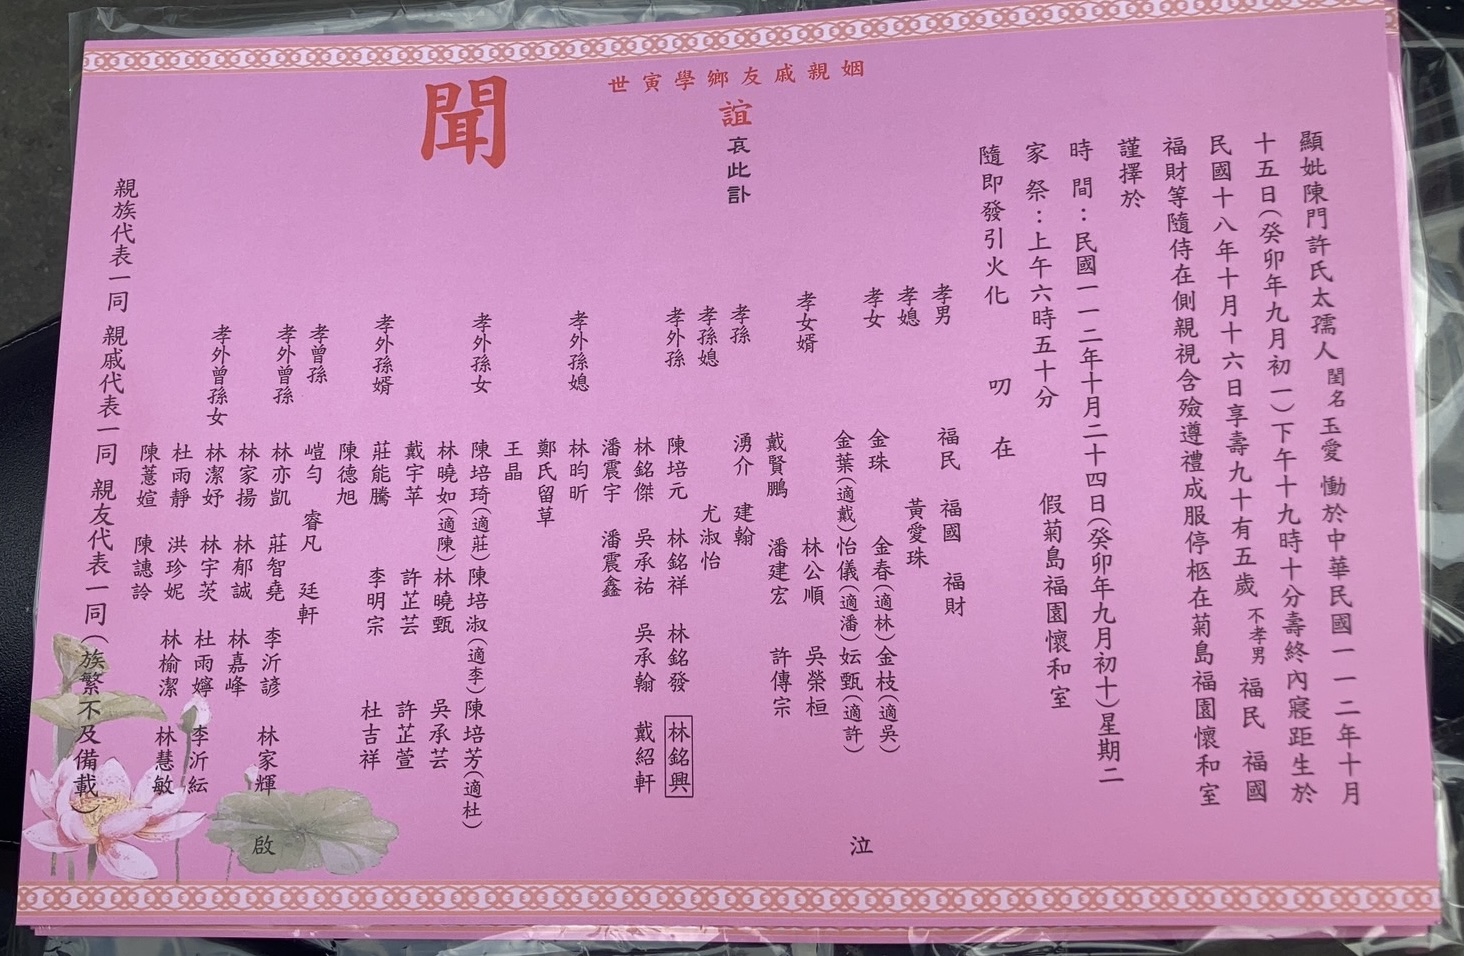 顯妣陳門許氏太孺人閨名玉愛 慟於中華民國一一二年十月
十五日(癸卯年九月初一)下午十九時十分壽終內寢距生於
民國十八年十月十六日享壽九十有五歲 不孝男 福民 福國
福財等隨侍在側親視含殮遵禮成服停柩在菊島福園懷和室
謹擇於
時 間：民國一一二年十月二十四日(癸卯年九月初十)星期二
家 祭：上午六時五十分 假菊島福園懷和室
隨即發引火化 叨 在
姻親戚友鄉學寅世
誼
哀此訃
聞
孝男 福民 福國 福財
孝媳 黃愛珠
孝女 金珠 金春(適林)金枝(適吳)
金葉(適戴)怡儀(適潘)妘甄(適許)
孝女婿 林公順 吳榮桓
戴賢鵬 潘建宏 許傳宗
孝孫 湧介 建翰
孝孫媳 尤淑怡
孝外孫 陳培元 林銘祥 林銘發 林銘興
林銘傑 吳承祐 吳承翰 戴紹軒
潘震宇 潘震鑫
孝外孫媳 林昀昕
鄭氏留草
王晶
孝外孫女 陳培琦(適莊)陳培淑(適李)陳培芳(適杜)
林曉如(適陳)林曉甄 吳承芸
戴宇苹 許芷芸 許芷萱
孝外孫婿 莊能騰 李明宗 杜吉祥
陳德旭
孝曾孫 愷勻 睿凡 廷軒
孝外曾孫 林亦凱 莊智堯 李沂諺 林家輝
林家揚 林郁誠 林嘉峰
孝外曾孫女 林潔妤 林宇茨 杜雨嬣 李沂紜
杜雨靜 洪珍妮 林榆潔 林慧敏
陳薏媗 陳譓詅
泣
啟
親族代表一同 親戚代表一同 親友代表一同(族繁不及備載)